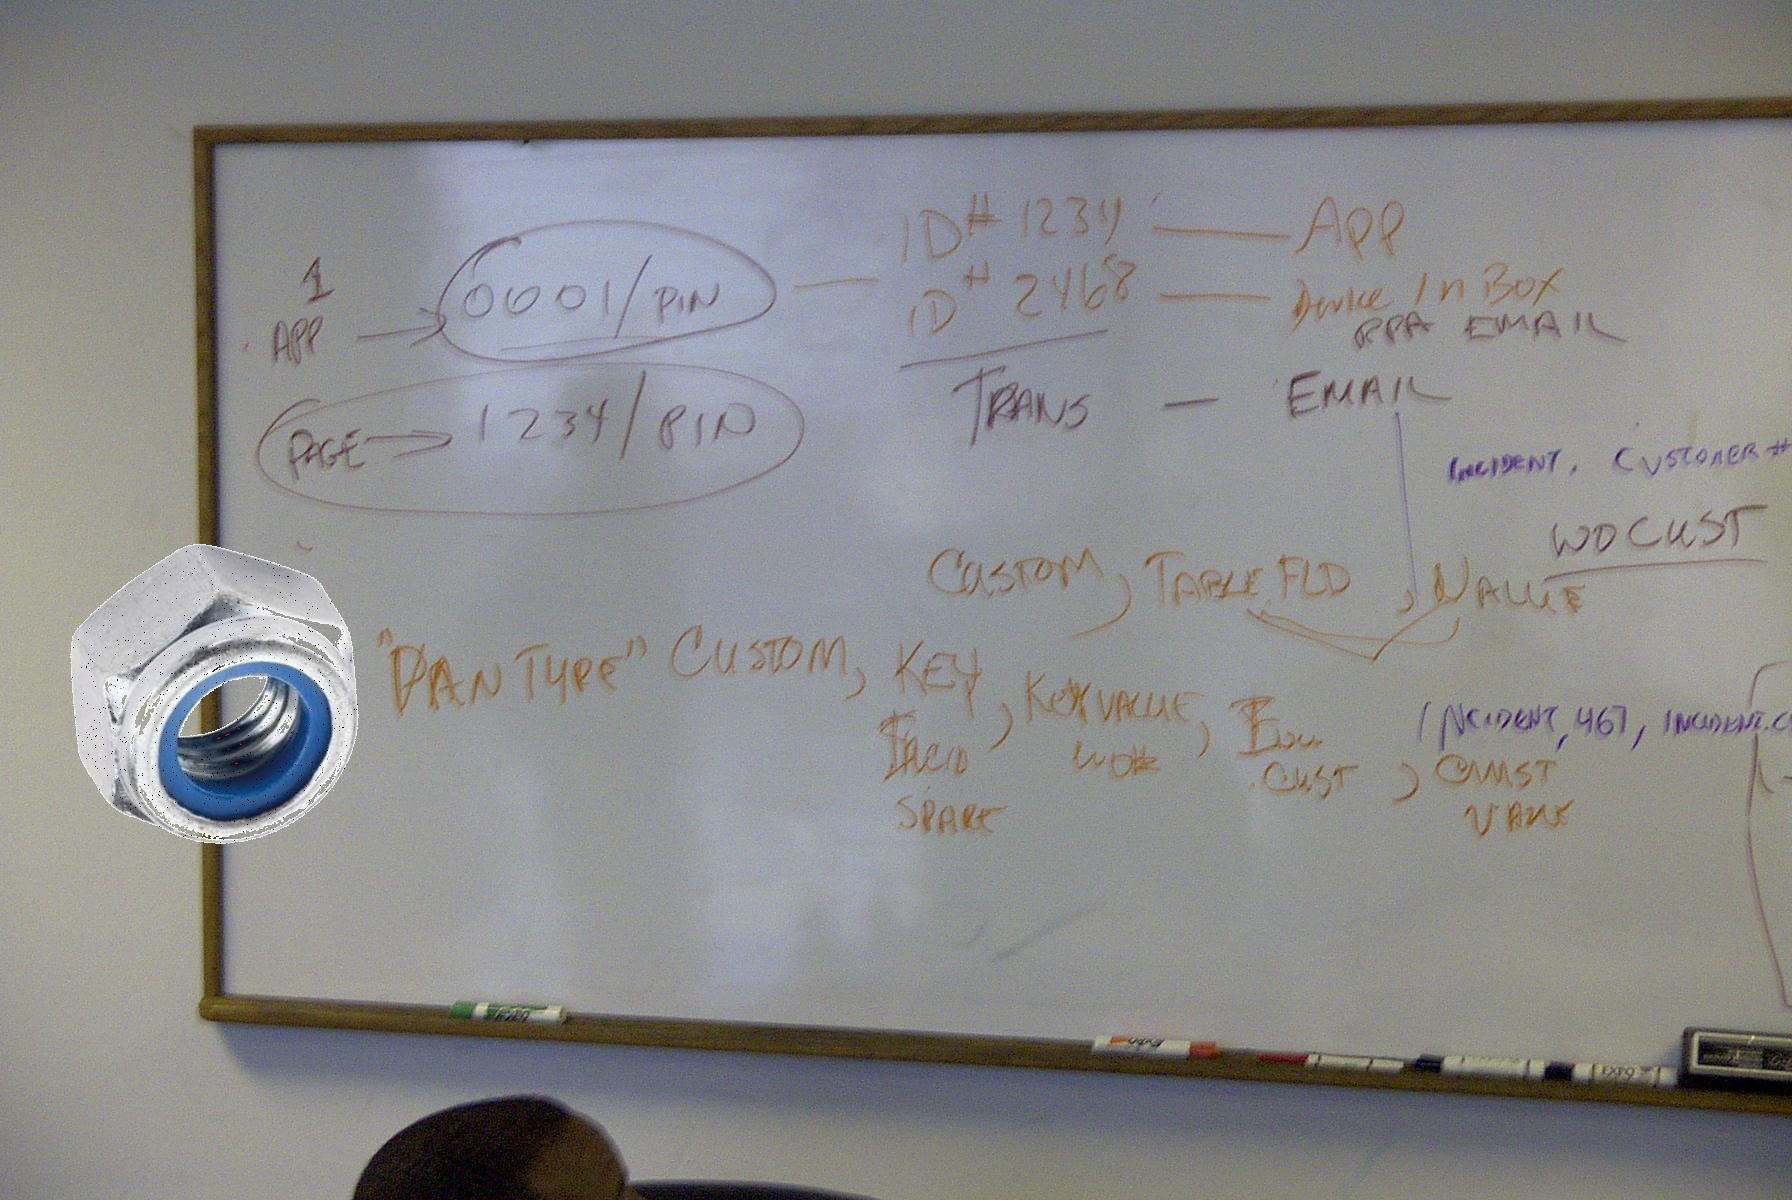 1
APP → 0001/PIN — ID# 1234 — APP
ID# 2468 — Device In Box
EMAIL
PAGE → 1234/PIN
TRANS — EMAIL
INCIDENT, CUSTOMER #
WOCUST
CUSTOM, TABLE.FLD, VALUE
"PAN TYPE" CUSTOM, KEY, KEY VALUE,
INCIDENT, 467, INCIDENT.C
WO# CUST, CUST
SPARE VALUE
EXPO